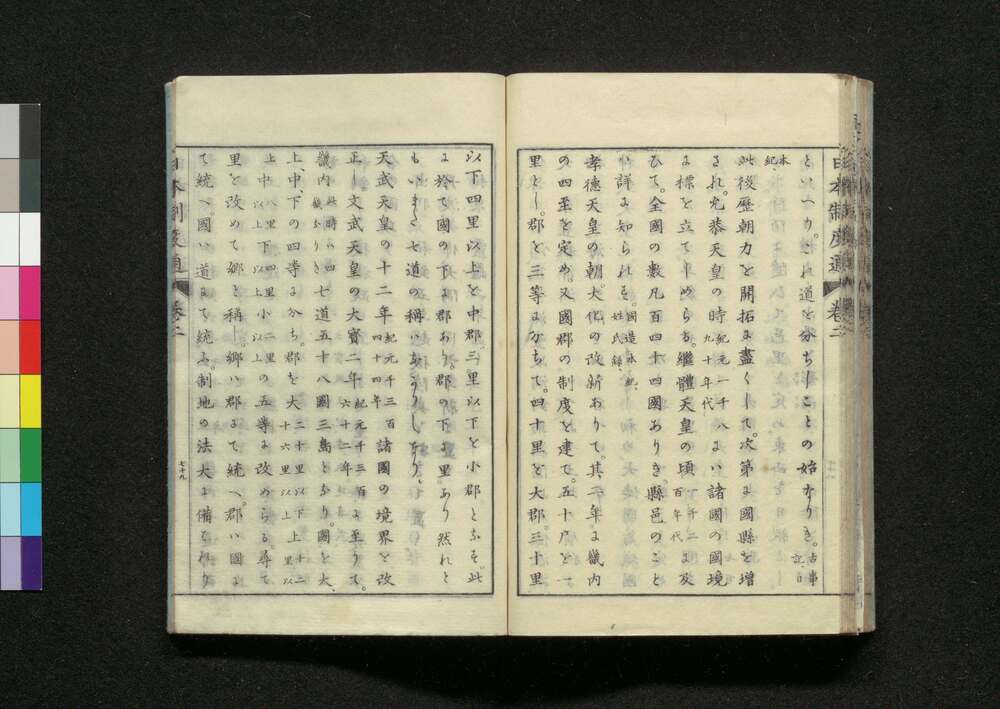 といへり。これ道を分ちしことの始なりき。古事記日
本紀、
此後歴朝力を開拓に盡くして。次第に國縣を増
され。允恭天皇の時紀元一千九十年代。には諸國の國境
に標を立てしめらる。繼體天皇の頃千二百年代に及
ひて。全國の數凡百四十四國ありき。縣邑のこと
は詳に知られす。國造本紀、姓氏録、
孝德天皇の朝。大化の改新ありて。其二年に畿内
の四至を定め。又國郡の制度を建て。五十戸を一
里とし。郡を三等にわかちて。四十里を大郡。三十里
以下四里以上を中郡三里以下を小郡となす。此
に於て國の下に郡あり。郡の下に里あり然れと
もいまた七道の稱はなかりしなり。
天武天皇の十二年紀元千三百四十四年諸國の境界を改
正し文武天皇の大寶二年紀元千三百六十二年に至りて。
畿内此時は四畿なりき七道五十八國三島となり。國を大、
上、中、下の四等にわかち。郡を大二十里以下十六里以上上十二里以上
中八里以上下四里以上小二里以上の五等に改めらる。尋て
里を改めて郷と稱し。郷は郡にて統へ。郡は國に
て統へ。國は道にて統ふ。制地の法大に備はれり
日本制度通
卷二
七十九
日本制度通
卷二